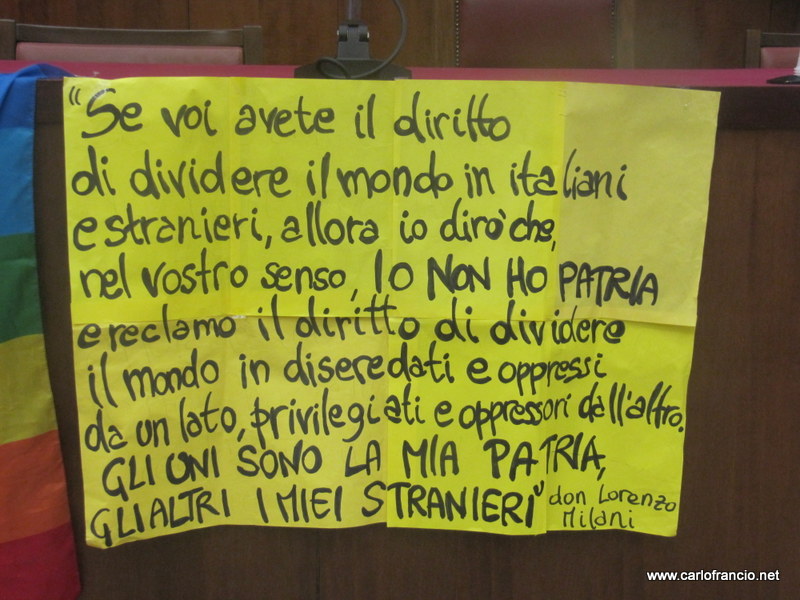 "Se voi avete il diritto
di dividere il mondo in italiani
e stranieri, allora io dirò che,
nel vostro senso, IO NON HO PATRIA
e reclamo il diritto di dividere
il mondo in diseredati e oppressi
da un lato, privilegiati e oppressori dall'altro.
GLI UNI SONO LA MIA PATRIA,
GLI ALTRI I MIEI STRANIERI"
don Lorenzo
Milani
www.carlofrancio.net